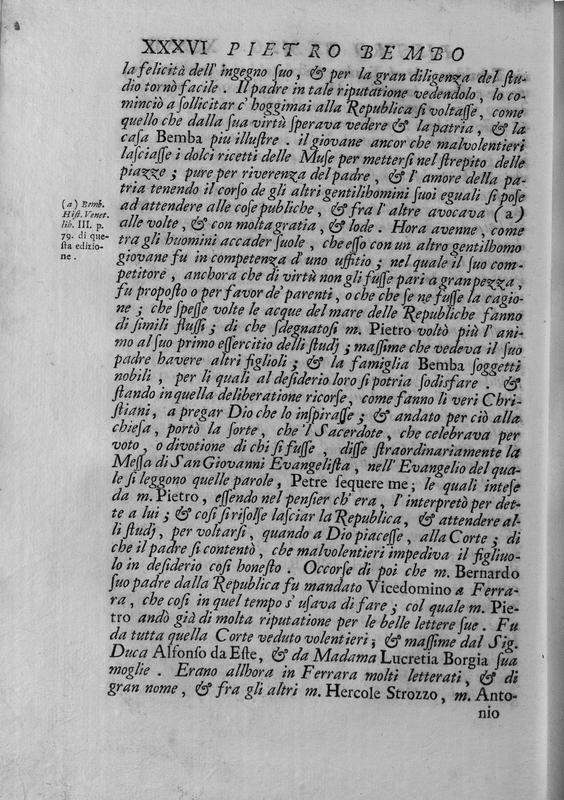 XXXVI PIETRO BEMBO
la felicità dell' ingegno ſuo, & per la gran diligenza del ſtu-
dio tornò facile. Il padre in tale riputatione vedendolo, lo co-
minciò a ſollicitar c' hoggimai alla Republica ſi voltaſſe, come
quello che dalla ſua virtù ſperava vedere & la patria, & la
caſa Bemba piu illuſtre. il giovane ancor che malvolentieri
laſciaſſe i dolci ricetti delle Muſe per metterſi nel ſtrepito delle
piazze; pure per riverenza del padre, & l' amore della pa-
tria tenendo il corſo de gli altri gentilihomini ſuoi eguali ſi poſe
ad attendere alle coſe publiche, & fra l' altre avocava (a)
alle volte, & con molta gratia, & lode. Hora avenne, come
tra gli huomini accader ſuole, che eſſo con un altro gentilhomo
giovane fu in competenza d' uno uffitio; nel quale il ſuo com-
petitore, anchora che di virtù non gli fuſſe pari a gran pezza,
fu propoſto o per favor de' parenti, o che che ſe ne fuſſe la cagio-
ne; che ſpeſſe volte le acque del mare delle Republiche fanno
di ſimili fluſſi; di che ſdegnatoſi m. Pietro voltò più l' ani-
mo al ſuo primo eſſercitio delli ſtudj; maſſime che vedeva il ſuo
padre havere altri figlioli; & la famiglia Bemba ſoggetti
nobili, per li quali al deſiderio loro ſi potria ſodisfare. &
ſtando in quella deliberatione ricorſe, come fanno li veri Chri-
ſtiani, a pregar Dio che lo inſpiraſſe; & andato per ciò alla
chieſa, portò la ſorte, che 'l Sacerdote, che celebrava per
voto, o divotione di chi ſi fuſſe, diſſe ſtraordinariamente la
Meſſa di San Giovanni Evangeliſta, nell' Evangelio del qua-
le ſi leggono quelle parole, Petre ſequere me; le quali inteſe
da m. Pietro, eſſendo nel penſier ch' era, l' interpretò per det-
te a lui; & coſi ſi riſolſe laſciar la Republica, & attendere al-
li ſtudj, per voltarſi, quando a Dio piaceſſe, alla Corte; di
che il padre ſi contentò, che malvolentieri impediva il figliuo-
lo in deſiderio coſi honeſto. Occorſe di poi che m. Bernardo
ſuo padre dalla Republica fu mandato Vicedomino a Ferra-
ra, che coſi in quel tempo s' uſava di fare; col quale m. Pie-
tro andò già di molta riputatione per le belle lettere ſue. Fu
da tutta quella Corte veduto volentieri; & maſſime dal Sig.
Duca Alfonſo da Eſte, & da Madama Lucretia Borgia ſua
moglie. Erano allhora in Ferrara molti letterati, & di
gran nome, & fra gli altri m. Hercole Strozzo, m. Anto-
nio
(a) Bemb.
Hiſt. Venet.
lib. III. p.
79. di que-
ſta edizio-
ne.